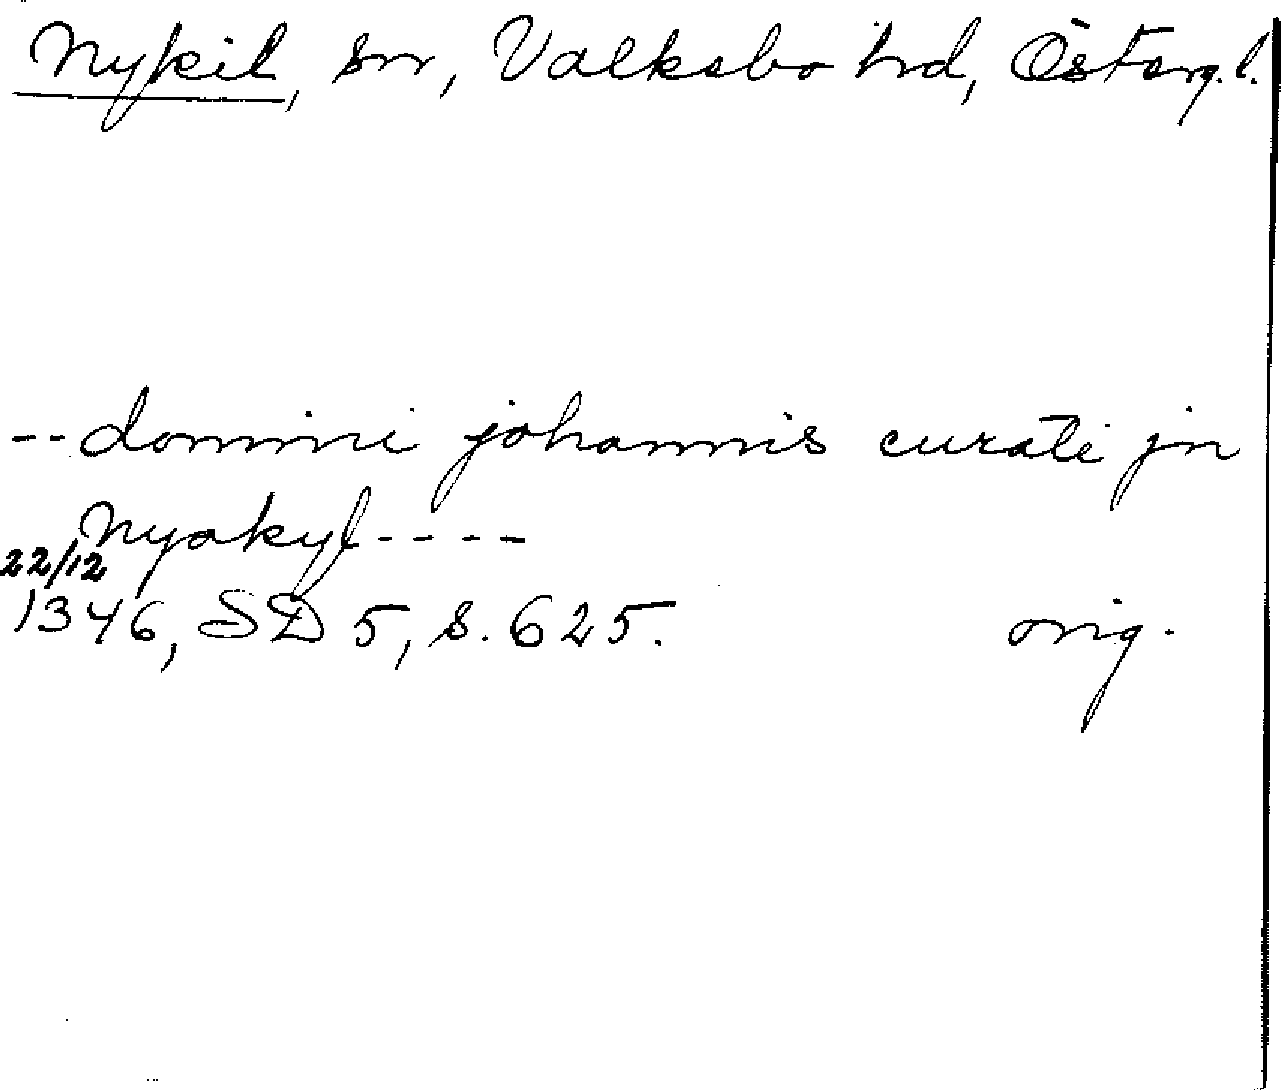 Nykil, sn, Valkebo hd, Österg. l.
-- domini johannis curati jn
Nyakyl ----
22/12
1346, SD 5, s. 625. orig.